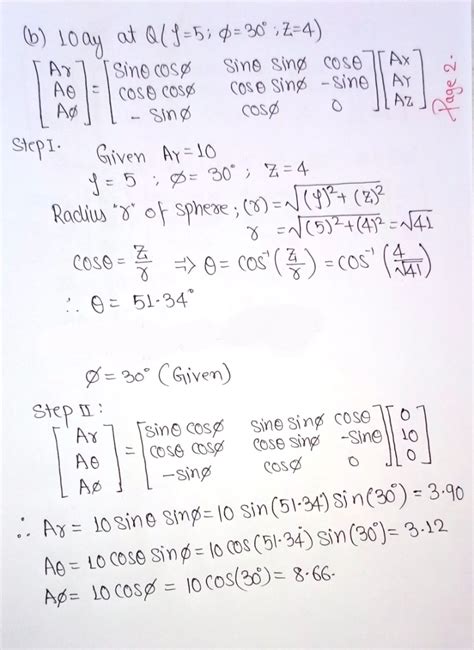 (b) 10ay at Q(ρ=5; Ø=30°; Z=4)
[Ar Aθ AØ] = [sinθ cosØ sinθ sinØ cosθ
cosθ cosØ cosθ sinØ -sinθ
- sinØ cosØ 0] [Ax AY AZ]
Page 2.
Step I. Given AY=10
ρ = 5 ; Ø= 30° ; Z=4
Radius "r" of sphere; (r) = √(ρ)²+(Z)²
r = √(5)²+(4)² = √41
cosθ = Z/r ⇒ θ = cos⁻¹(Z/r) = cos⁻¹(4/√41)
∴ θ = 51.34°
Ø = 30° (Given)
Step II:
[Ar Aθ AØ] = [sinθ cosØ sinθ sinØ cosθ
cosθ cosØ cosθ sinØ -sinθ
-sinØ cosØ 0] [0 10 0]
∴ Ar = 10 sinθ sinØ = 10 sin(51.34°) sin(30°) = 3.90
Aθ = 10 cosθ sinØ = 10 cos(51.34°) sin(30°) = 3.12
AØ = 10 cosØ = 10 cos(30°) = 8.66.